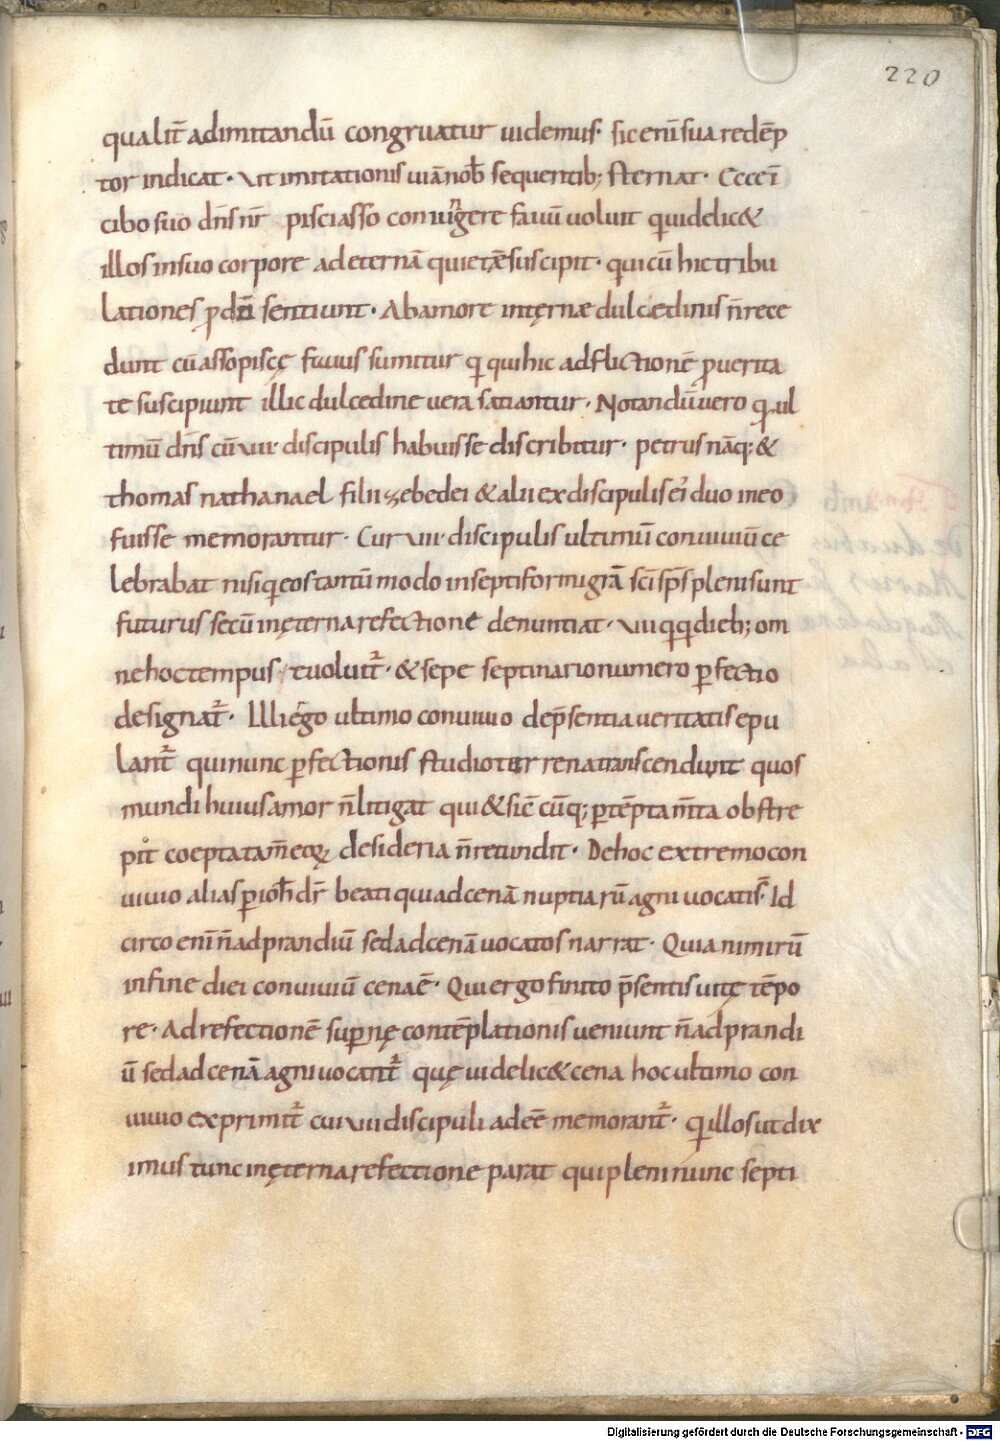 220
qualit̄ adimitandū congruatur uidemus· sic enī sua redēp
tor indicat· ut imitationis uiā nob̄ sequentib; sternat· Ecce ī
cibo suo dn̄s nr̄ pisci asso coniungere fauū uoluit qui delic&
illos in suo corpore ad eternā quietē suscipit· qui cū hic tribu
lationes ꝓ dō sentiunt· Ab amore internæ dulcedinis n̄ rece
dunt cū asso piscę fauus sumitur q̄ qui hic adflictionē ꝓ uerita
te suscipiunt illic dulcedine uera satiantur· Notandū uero q̄ ul
timū dn̄s cū uii· discipulis habuisse discribitur· petrus nāq; &
thomas nathanael filii zebedei & alii ex discipulis ei duo in eo
fuisse memorantur· Cur uii· discipulis ultimū conuiuiū ce
lebrabat nisi q̄ eos tantū modo in septiformi grā sci sp̄s pleni sunt
futurus secū in ęterna refectione denuntiat· uii q̄q̄ dieb; om
ne hoc tempus uoluit᷑· & sepe septinario numero ꝑfectio
designat᷑· Illi ergo ultimo conuiuio de p̄sentia ueritatis epu
lant᷑ qui nunc ꝑfectionis studio terrena transcendunt quos
mundi huius amor n̄ litigat qui & si cū q; ꝑ tēptam̄ta obstre
pit coepta tam̄ eoꝝ desideria n̄ retundit· De hoc extremo con
uiuio alias ꝑ ioh̄ dr̄ beati qui ad cenā nuptiarū agni uocatis̄· Id
circo enī n̄ ad prandiū sed ad cenā uocatos narrat· Quia nimirū
in fine diei conuiuiū cena ē· Qui ergo finito p̄sentis uitę tēpo
re· Ad refectionē suꝑnę contēplationis ueniunt n̄ ad prandi
ū sed ad cenā agni uocant᷑ quę uidelic& cena hoc ultimo con
uiuio exprimit᷑ cui uii discipuli adeē memorant᷑· q̄ illos ut dix
imus tunc in ęterna refectione parat qui pleni nunc septi
Digitalisierung gefördert durch die Deutsche Forschungsgemeinschaft - DFG